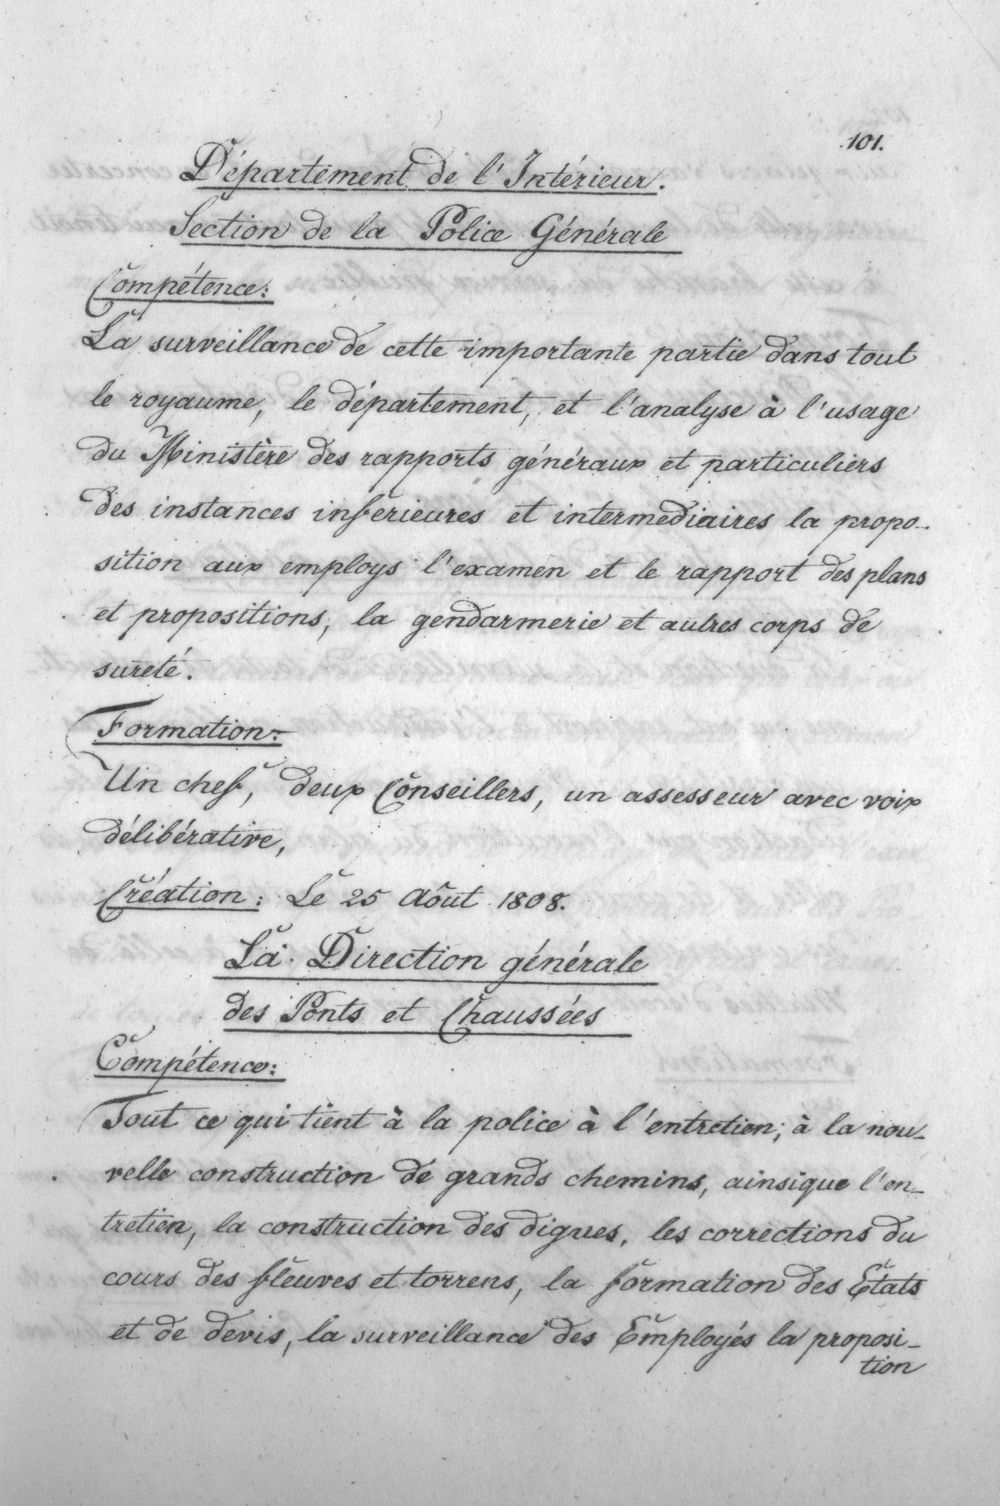 101.
Département de l'Intérieur.
Section de la Police Générale
Compétence:
La surveillance de cette importante partie dans tout
le royaume, le département, et l'analyse à l'usage
du Ministère des rapports généraux et particuliers
des instances inferieures et intermediaires la propo-
sition aux employs l'examen et le rapport des plans
et propositions, la gendarmerie et autres corps de
sureté.
Formation:
Un chef, deux Conseillers, un assesseur avec voix
délibérative,
Création: Le 25 Août 1808.
La Direction générale
des Ponts et Chaussées
Compétence:
Tout ce qui tient à la police à l'entretien, à la nou-
velle construction de grands chemins, ainsique l'en-
tretien, la construction des digues, les corrections du
cours des fleuves et torrens, la formation des Etats
et de devis, la surveillance des Employés la proposi-
tion